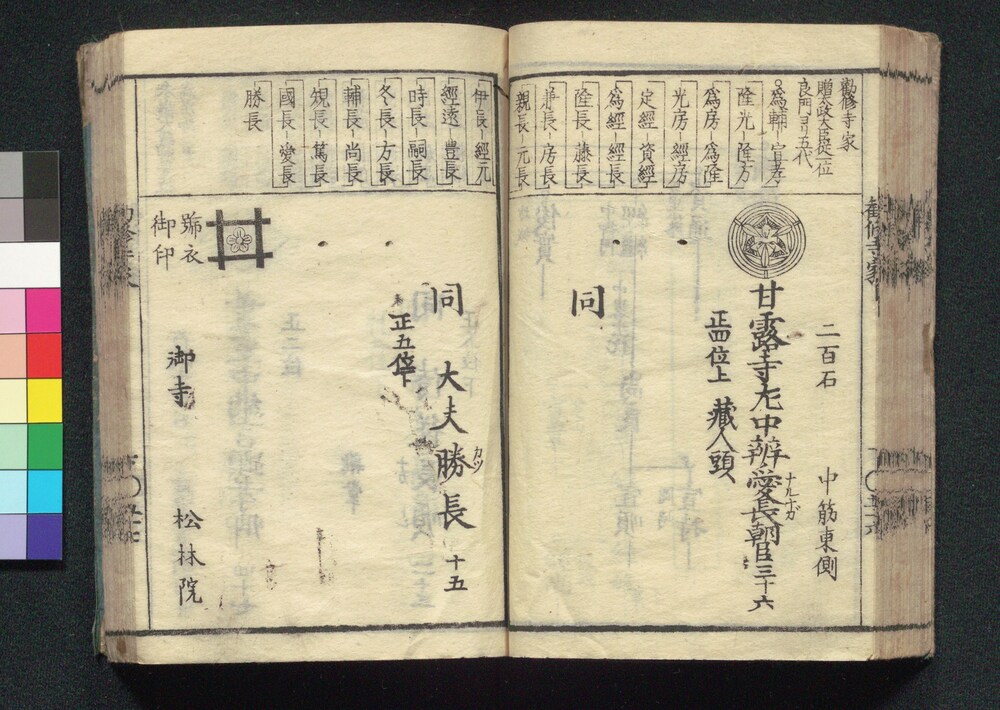 勸修寺家
贈太政大臣從一位
良門ヨリ五代
爲輔 宣孝
隆光 隆方
爲房 爲隆
光房 經房
定經 資經
爲經 經長
隆長 藤長
兼長 房長
親長 元長
二百石 中筋東側
甘露寺左中辨愛長朝臣三十六
ナルナガ
正四位上 藏人頭
同
伊長 經元
經遠 豊長
時長 嗣長
冬長 方長
輔長 尚長
規長 篤長
國長 愛長
勝長
同 大夫勝長 十五
カツ
正五位下
號衣
御印
御寺 松林院